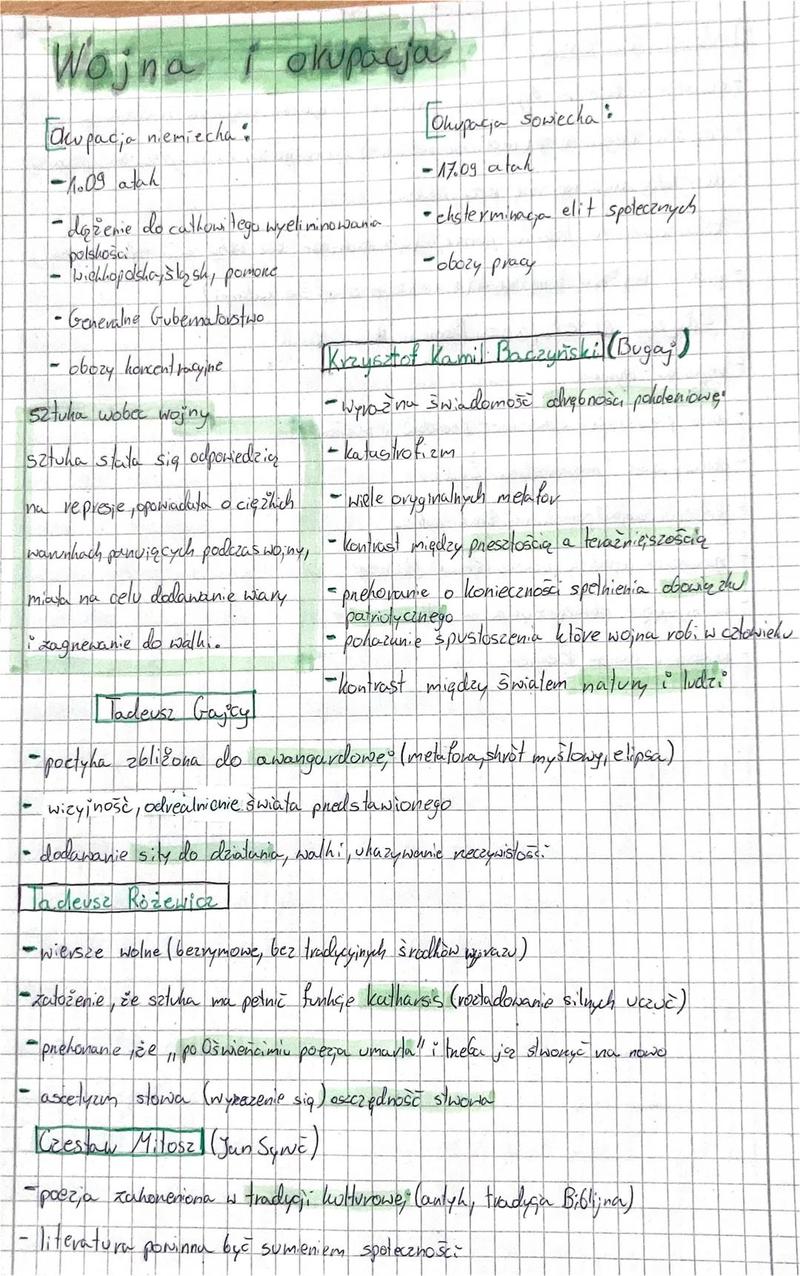 Wojna i okupacja
Okupacja niemiecka:
- 1.09 atak
- dążenie do całkowitego wyeliminowania
polskości
- Wielkopolska, Śląsk, pomorze
- Generalne Gubernatorstwo
- obozy koncentracyjne
Okupacja sowiecka:
- 17.09 atak
- eksterminacja elit społecznych
- obozy pracy
sztuka wobec wojny
sztuka stała się odpowiedzią
na represje, opowiadała o ciężkich
warunkach panujących podczas wojny,
miała na celu dodawanie wiary
i zagrzewanie do walki.
Krzysztof Kamil Baczyński (Bugaj)
- wyraźna świadomość odrębności pokoleniowej
- katastrofizm
- wiele oryginalnych metafor
- kontrast między przeszłością a teraźniejszością
- przekonanie o konieczności spełnienia obowiązku
patriotycznego
- pokazanie spustoszenia które wojna robi w człowieku
- kontrast między światem natury i ludzi
Tadeusz Gajcy
- poetyka zbliżona do awangardowej (metafora, skrót myślowy, elipsa)
- wizyjność, odrealnienie świata przedstawionego
- dodawanie siły do działania, walki, ukazywanie rzeczywistości
Tadeusz Różewicz
- wiersze wolne (bezrymowe, bez tradycyjnych środków wyrazu)
- założenie, że sztuka ma pełnić funkcje katharsis (rozładowanie silnych uczuć)
- przekonanie, że "po Oświęcimiu poezja umarła" i trzeba ją stworzyć na nowo
- ascetyzm słowa (wyrażenie się) oszczędność słwowa
Czesław Miłosz (Jan Syruć)
- poezja zakorzeniona w tradycji kulturowej (antyk, tradycja Biblijna)
- literatura powinna być sumieniem społeczności